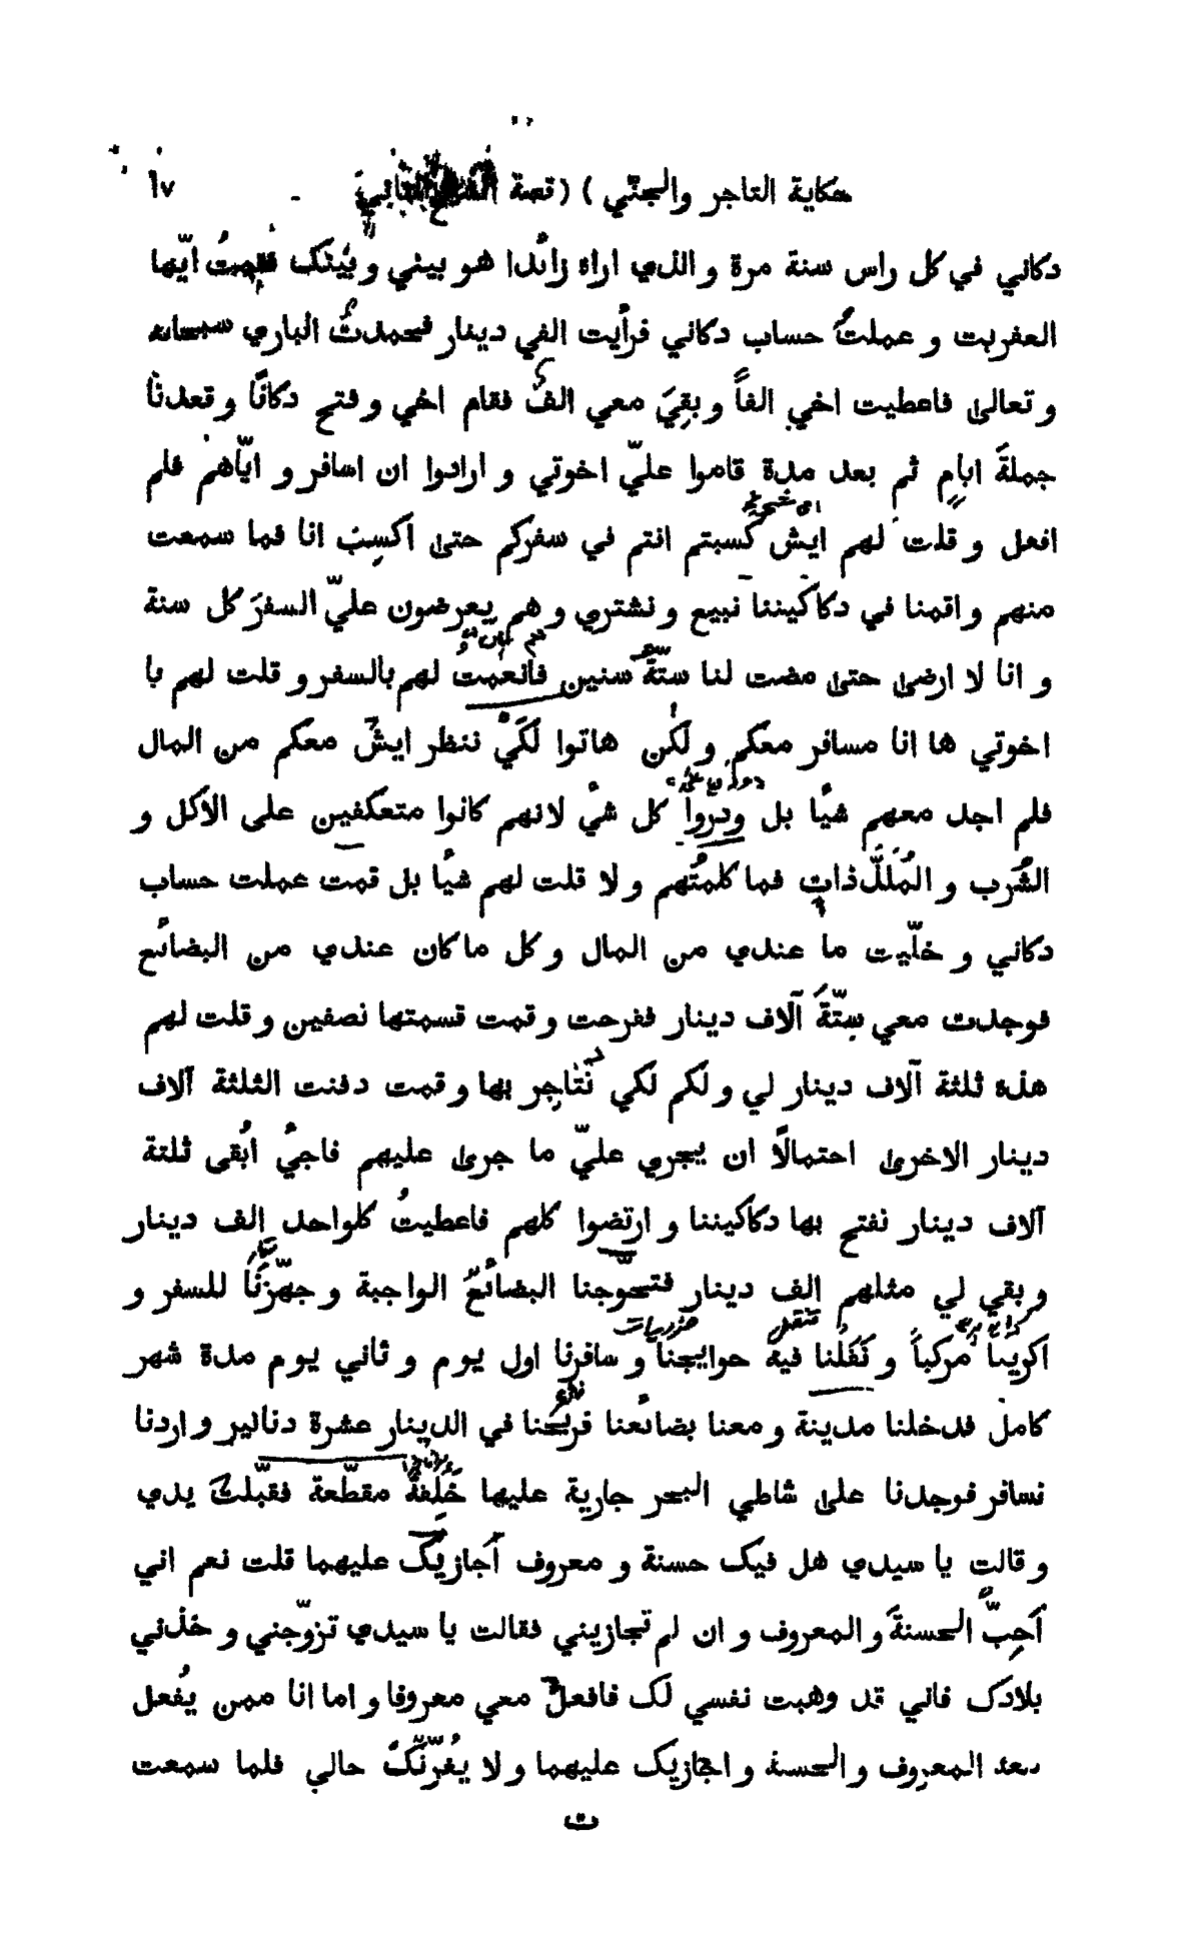 حكاية التاجر والجنّي ) ( قصة الثاني ١٧
دكاني في كل راس سنة مرة والذي اراه زائدا هو بيني وبينك فقمتُ ايّها
العفريت و عملتُ حساب دكاني فرأيت الفي دينار فحمدتُ الباري سبحانه
و تعالى فاعطيت اخي الفاً وبقِيَ معي الفٌ فقام اخي وفتح دكانًا وقعدنا
جملةَ ايامٍ ثم بعد مدة قاموا عليّ اخوتي و ارادوا ان اسافر و ايّاهم فلم
افعل و قلت لهم ايش كسبتم انتم في سفركم حتى اكسِبَ انا فما سمعت
منهم واقمنا في دكاكيننا نبيع و نشتري و هم يعرضون عليّ السفرَ كل سنة
و انا لا ارضى حتى مضت لنا ستّةُ سنين فانعمت لهم بالسفر و قلت لهم يا
اخوتي ها انا مسافر معكم ولكن هاتوا لَكَيْ ننظر ايش معكم من المال
فلم اجد معهم شيًا بل ودروا كل شيْ لانهم كانوا متعكفين على الاكل و
الشُرب و المُلَلَّذاتِ فما كلمتُهم و لا قلت لهم شيًا بل قمت عملت حساب
دكاني و خلّيت ما عندي من المال و كل ما كان عندي من البضائع
فوجدت معي ستّةَ آلاف دينار ففرحت و قمت قسمتها نصفين و قلت لهم
هذه ثلثة آلاف دينار لي و لكم لكي نُتاجِر بها و قمت دفنت الثلثة آلاف
دينار الاخرى احتمالًا ان يجري عليّ ما جرى عليهم فاجيُ ابُقى ثلثة
آلاف دينار نفتح بها دكاكيننا و ارتضوا كلهم فاعطيتُ كلواحد الف دينار
و بقي لي مثلهم الف دينار فتحوّجنا البضائعَ الواجبة و جهّزنَا للسفر و
اكرينا مركباً و نَقَلنا فيه حوايجنا و سافرنا اول يوم و ثاني يوم مدة شهر
كامل فدخلنا مدينة و معنا بضائعنا فربحنا في الدينار عشرة دنانير و اردنا
نسافر فوجدنا على شاطي البحر جارية عليها خَلِقةٌ مقطّعة فقبّلتْ يدي
و قالت يا سيدي هل فيك حسنة و معروف أجازيك عليهما قلت نعم اني
أحِبُّ الحسنةَ والمعروف و ان لم تجازيني فقالت يا سيدي تزوّجني و خذني
بلادك فاني قد وهبت نفسي لك فافعلْ معي معروفا و اما انا ممن يُفعل
معه المعروف و الحسنة و اجازيك عليهما و لا يغُرّنّكَ حالي فلما سمعت
ت